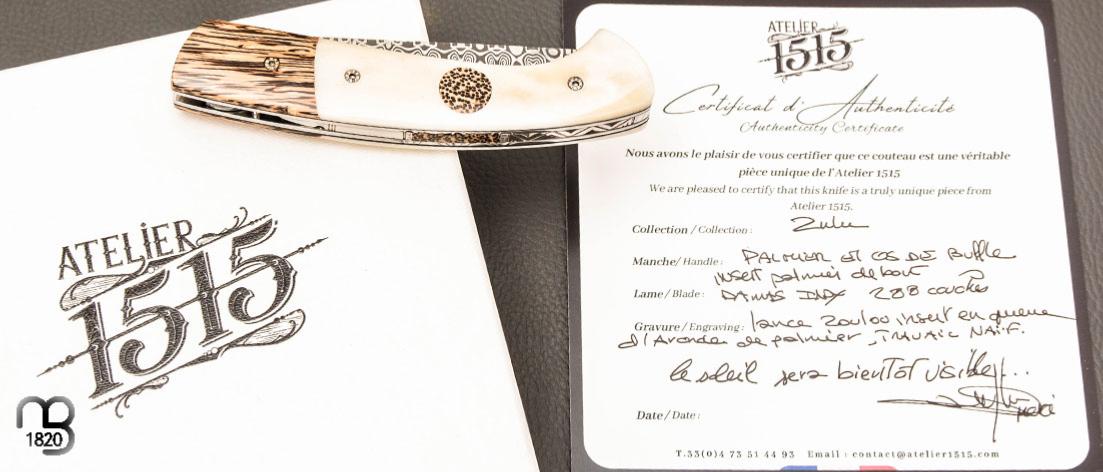 ATELIER
1515
1820
ATELIER
1515
Certificat d'Authenticité
Authenticity Certificate
Nous avons le plaisir de vous certifier que ce couteau est une véritable
pièce unique de l'Atelier 1515
We are pleased to certify that this knife is a truly unique piece from
Atelier 1515.
Collection / Collection : Zulu
Manche/ Handle : PALMIER ET OS DE Buffle
insert palmier debout
Lame / Blade : DAMAS INOX 288 couches
Gravure / Engraving : lance Zouloo, insert en queue
d'Aronde de palmier, TRAVAIL NAÏF.
le soleil sera bientôt visible!...
Date / Date :
T.33(0)4 73 51 44 93 Email : contact@atelier1515.com